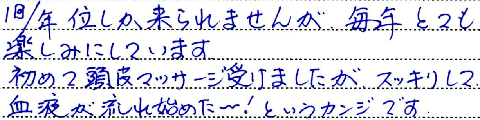 1回/年位しか来られませんが、毎年とても
楽しみにしています
初めて頭皮マッサージ受けましたが スッキリして
血液が流れ始めた〜!というカンジです